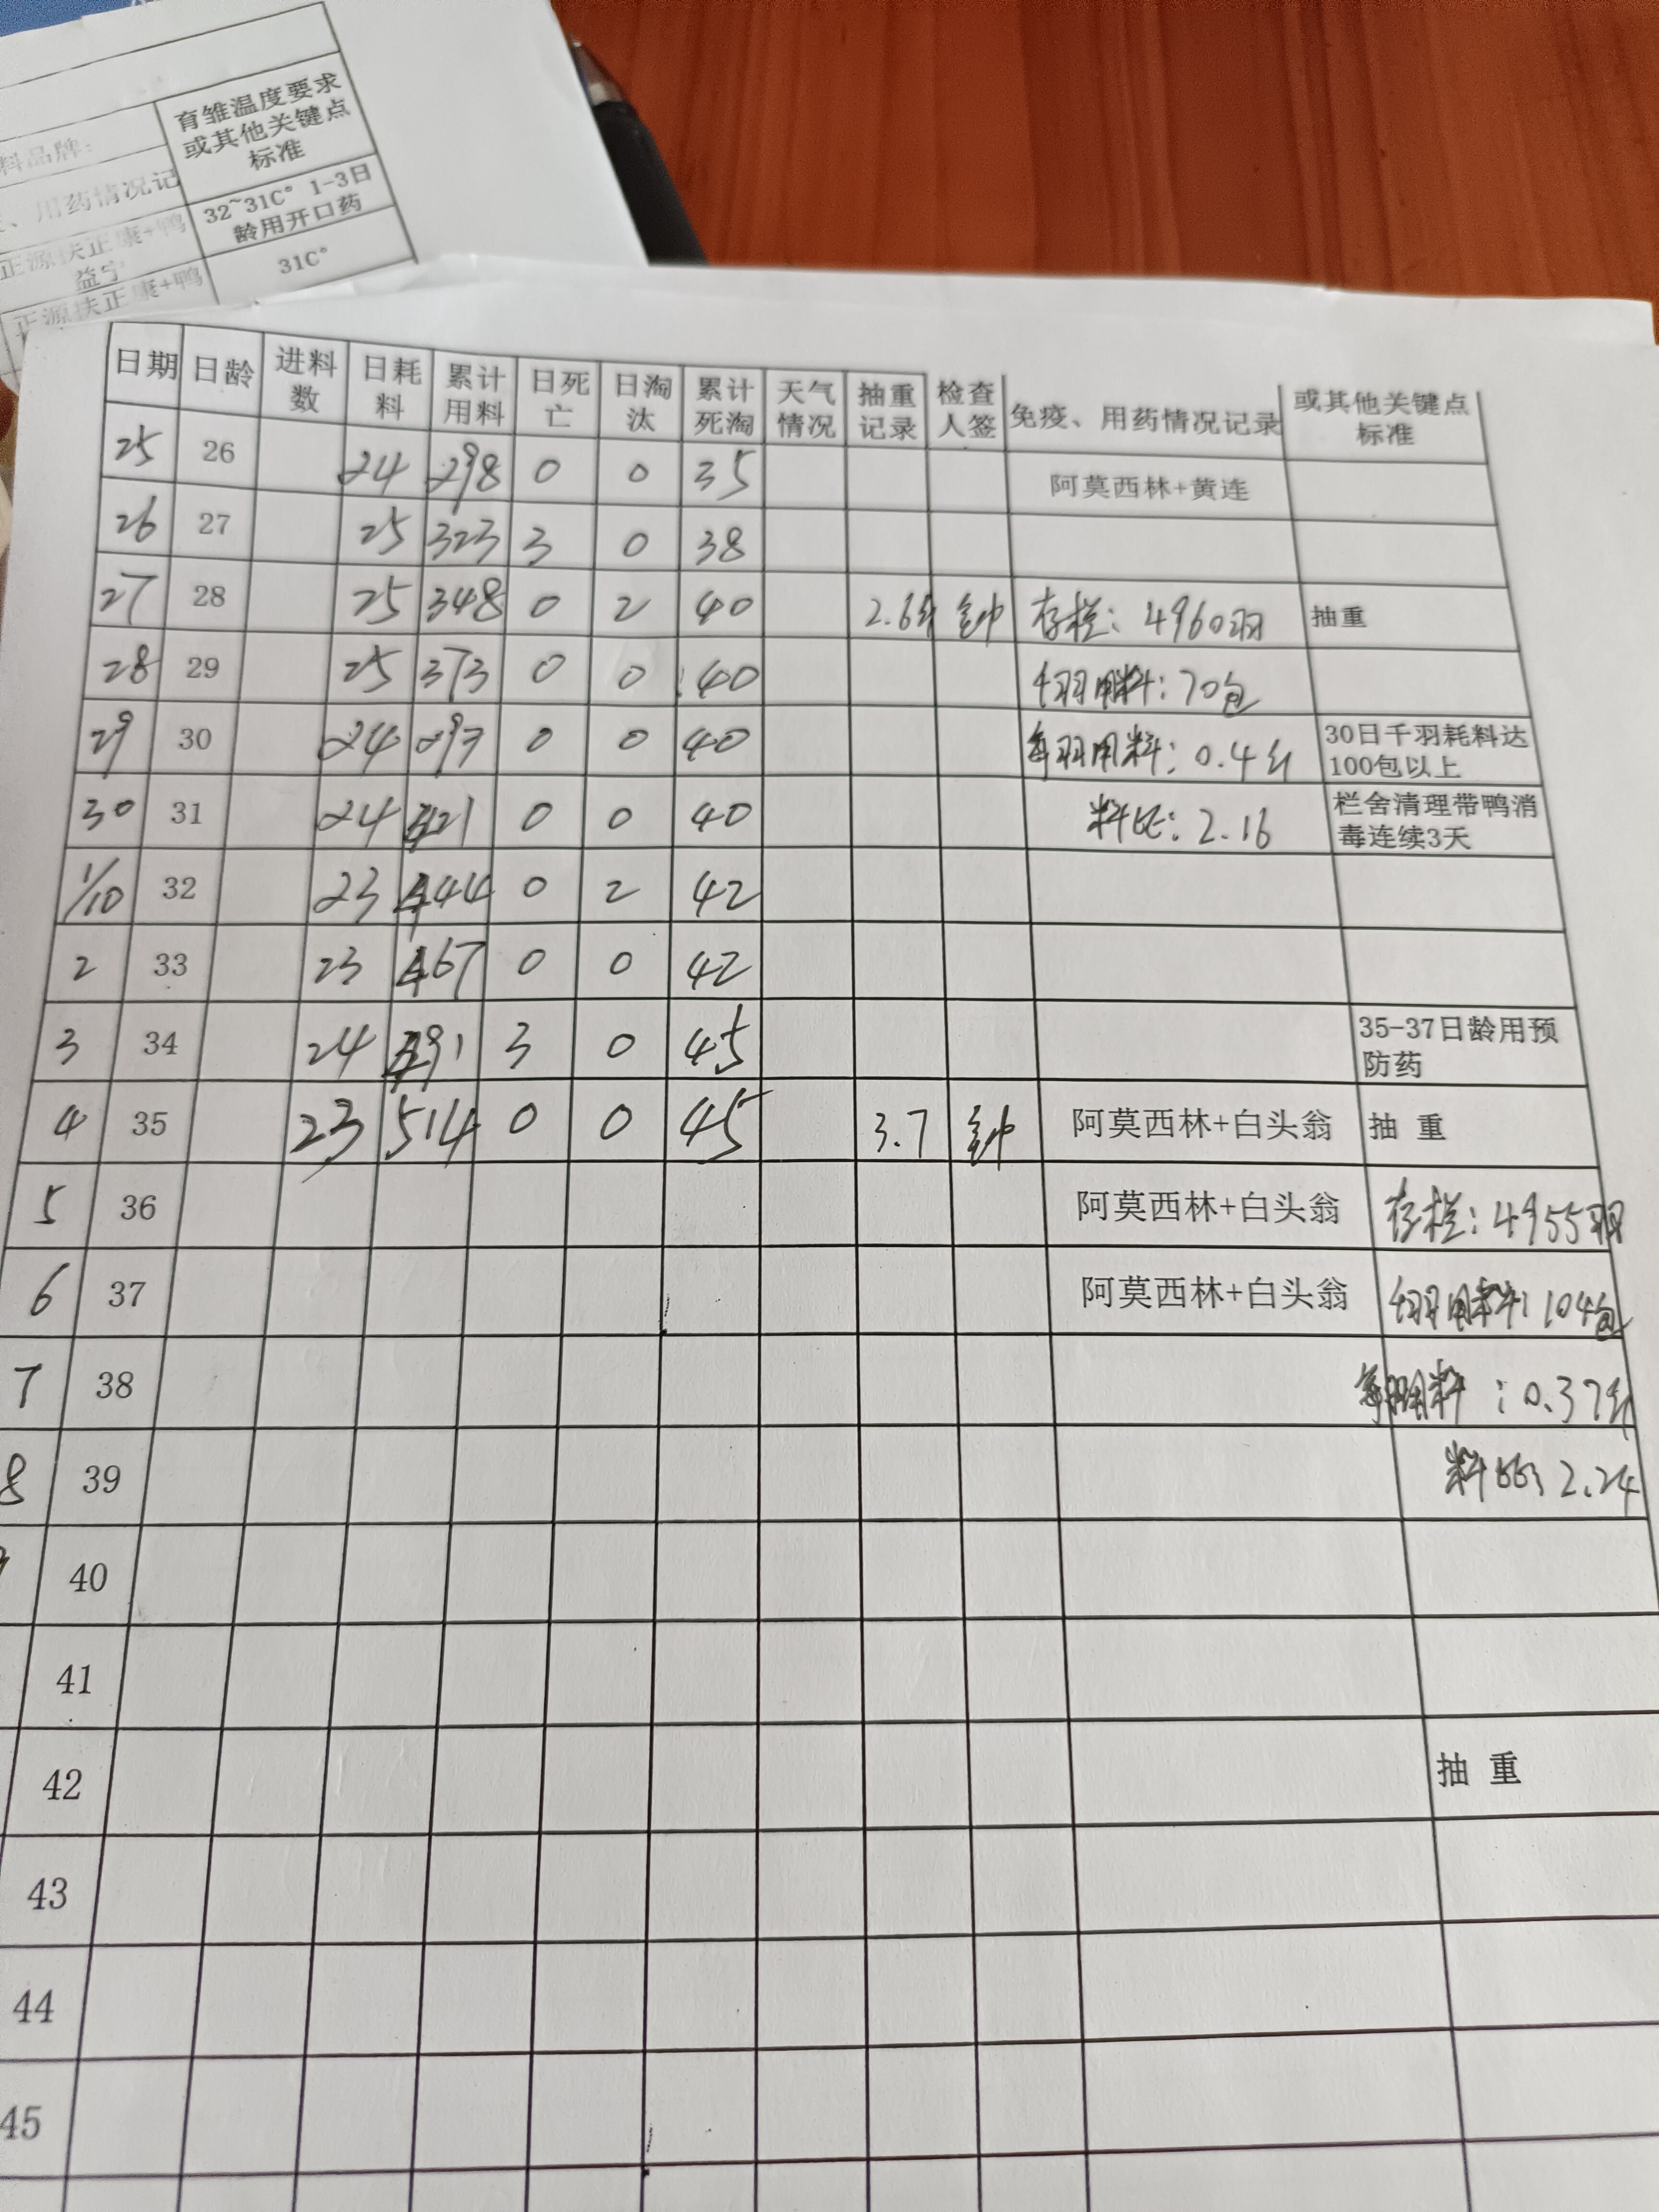 育雏温度要求
或其他关键点
标准
料品牌:
、用药情况记
32~31C° 1-3日
龄用开口药
正源扶正康+鸭
益宁
31C°
正源扶正康+鸭
日期 日龄 进料数 日耗料 累计用料 日死亡 日淘汰 累计死淘 天气情况 抽重记录 检查人签 免疫、用药情况记录 或其他关键点标准
25 26 24 298 0 0 35 阿莫西林+黄连
26 27 25 323 3 0 38
27 28 25 348 0 2 40 2.6斤 存栏: 4960羽 抽重
28 29 25 373 0 0 40 千羽用料: 70包
29 30 24 297 0 0 40 每羽用料: 0.4斤 30日千羽耗料达100包以上
30 31 24 421 0 0 40 料比: 2.16 栏舍清理带鸭消毒连续3天
1/10 32 23 444 0 2 42
2 33 23 467 0 0 42
3 34 24 491 3 0 45 35-37日龄用预防药
4 35 23 514 0 0 45 3.7 阿莫西林+白头翁 抽 重
5 36 阿莫西林+白头翁 存栏: 4955羽
6 37 阿莫西林+白头翁 千羽用料: 104包
7 38 每羽用料: 0.37斤
8 39 料比: 2.24
40
41
42 抽 重
43
44
45